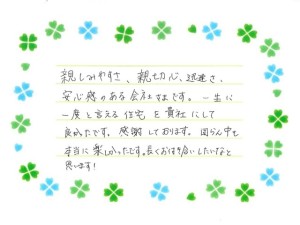 親しみやすさ、親切心、迅速さ、
安心感のある会社さまです。一生に
一度と言える住宅を貴社にして
良かったです。感謝しております。図らん中も
本当に楽しかったです。長くお付き合いしたいなと
思います!